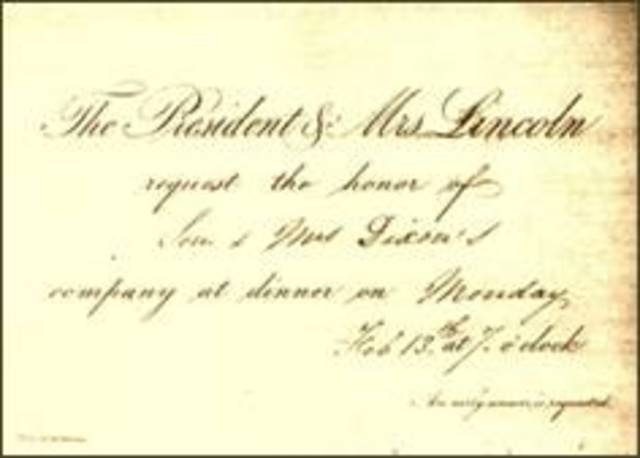 The President & Mrs Lincoln
request the honor of
Sen & Mrs Dixon's
company at dinner on Monday
Feb 13th at 7 o'clock
An early answer is requested